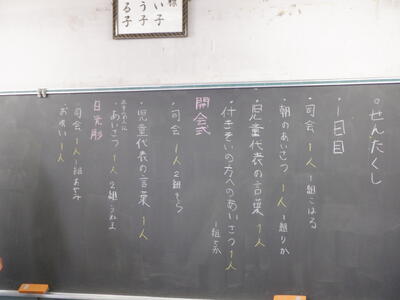 い子
う子
る子
せんたくし
一日目
・司会 1人 1組こはる
・朝のあいさつ 1人 1組りか
・児童代表の言葉 1人
・付きそいの方へのあいさつ 1人
開会式
・司会 1人 2組そら
・児童代表の言葉 1人
・あいさつ 1人 2組
日光彫
・司会 1人 1組
お礼い 1人